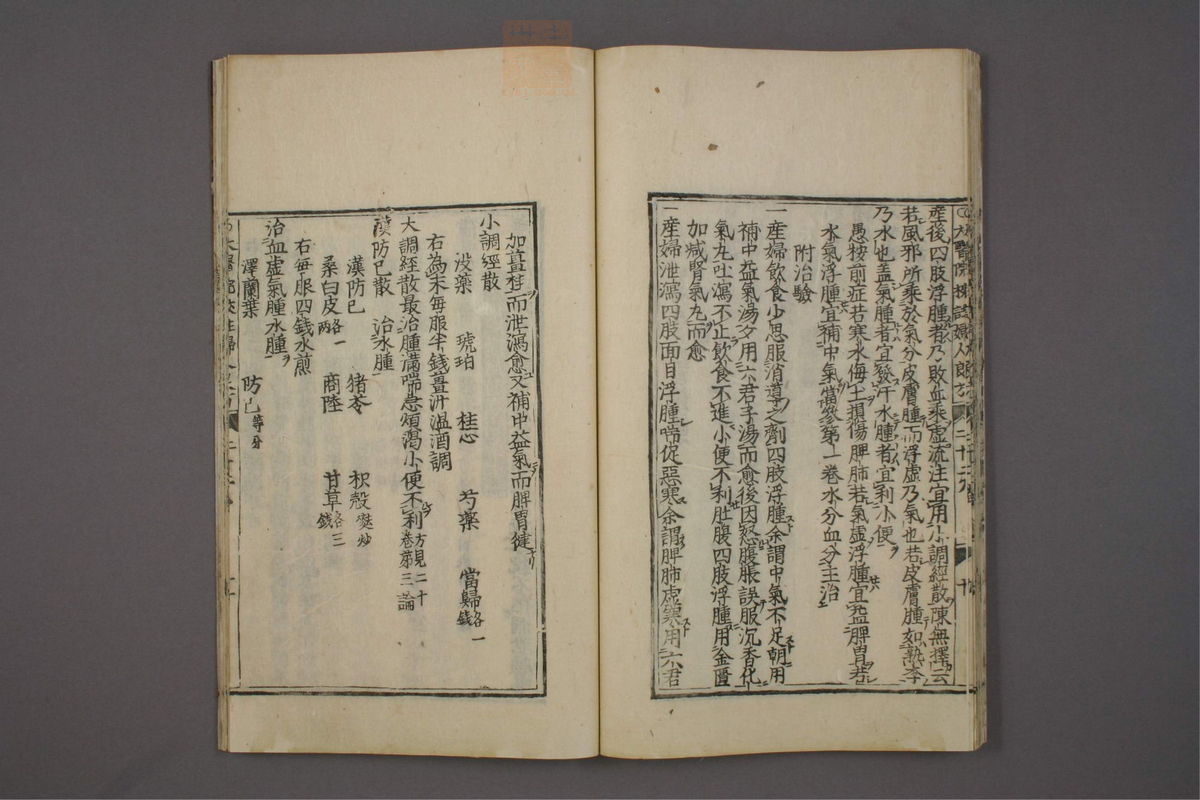 太醫院校註婦人良方
産後四肢浮腫者乃敗血乘虚流注宜用小調經散陳無擇云
若風邪所乘於氣分皮膚腫而浮虚乃氣也若皮膚腫如熟李
乃水也盖氣腫者宜發汗水腫者宜利小便
愚按前症若寒水侮土損傷脾肺若氣虚浮腫宜益脾胃若
水氣浮腫宜補中氣當參第一卷水分血分主治
附治驗
一産婦飲食少思服消導之劑四肢浮腫余謂中氣不足朝用
補中益氣湯夕用六君子湯而愈後因怒腹脹誤服沉香化
氣丸吐瀉不止飲食不進小便不利肚腹四肢浮腫用金匱
加减腎氣丸而愈
一産婦泄瀉四肢面目浮腫喘促惡寒余謂脾肺虚寒用六君
加薑桂而泄瀉愈又補中益氣而脾胃健
小調經散
没藥 琥珀 桂心 芍藥 當歸各一錢
右為末每服半錢薑汁温酒調
大調經散最治腫滿喘急煩渴小便不利方見二十卷第三論
漢防已散 治水腫
漢防已 猪苓 枳殻麩炒
桑白皮各一兩 商陸 甘草各三錢
右每服四錢水煎
治血虚氣腫水腫
澤蘭葉 防已等分